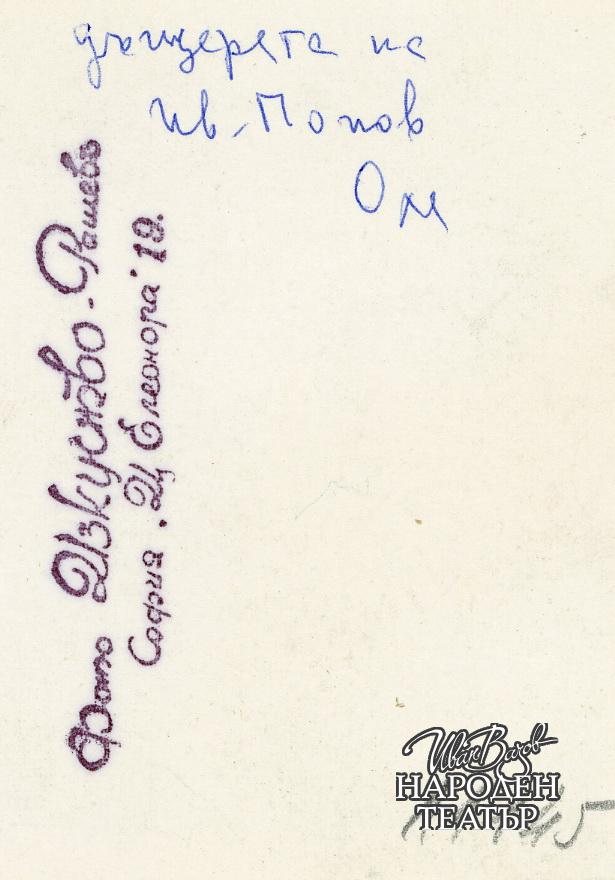 дъщерята на
Ив. Попов
Оля
Фото Изкуство - Рашевъ
София. Ц Елеонора 19.
Иван Вазов
НАРОДЕН
ТЕАТЪР